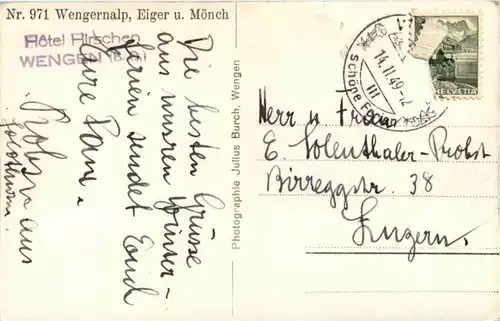 Nr. 971 Wengernalp, Eiger u. Mönch
Hôtel Hirschen
WENGEN
Die besten Grüsse
aus unseren Winter-
ferien sendet Euch
Eure Fam.
aus
Solothurn.
Photographie Julius Burch, Wengen
14.II.49
III
HELVETIA
Herr u Frau
E. Solenthaler-Probst
Birreggstr. 38
Luzern.